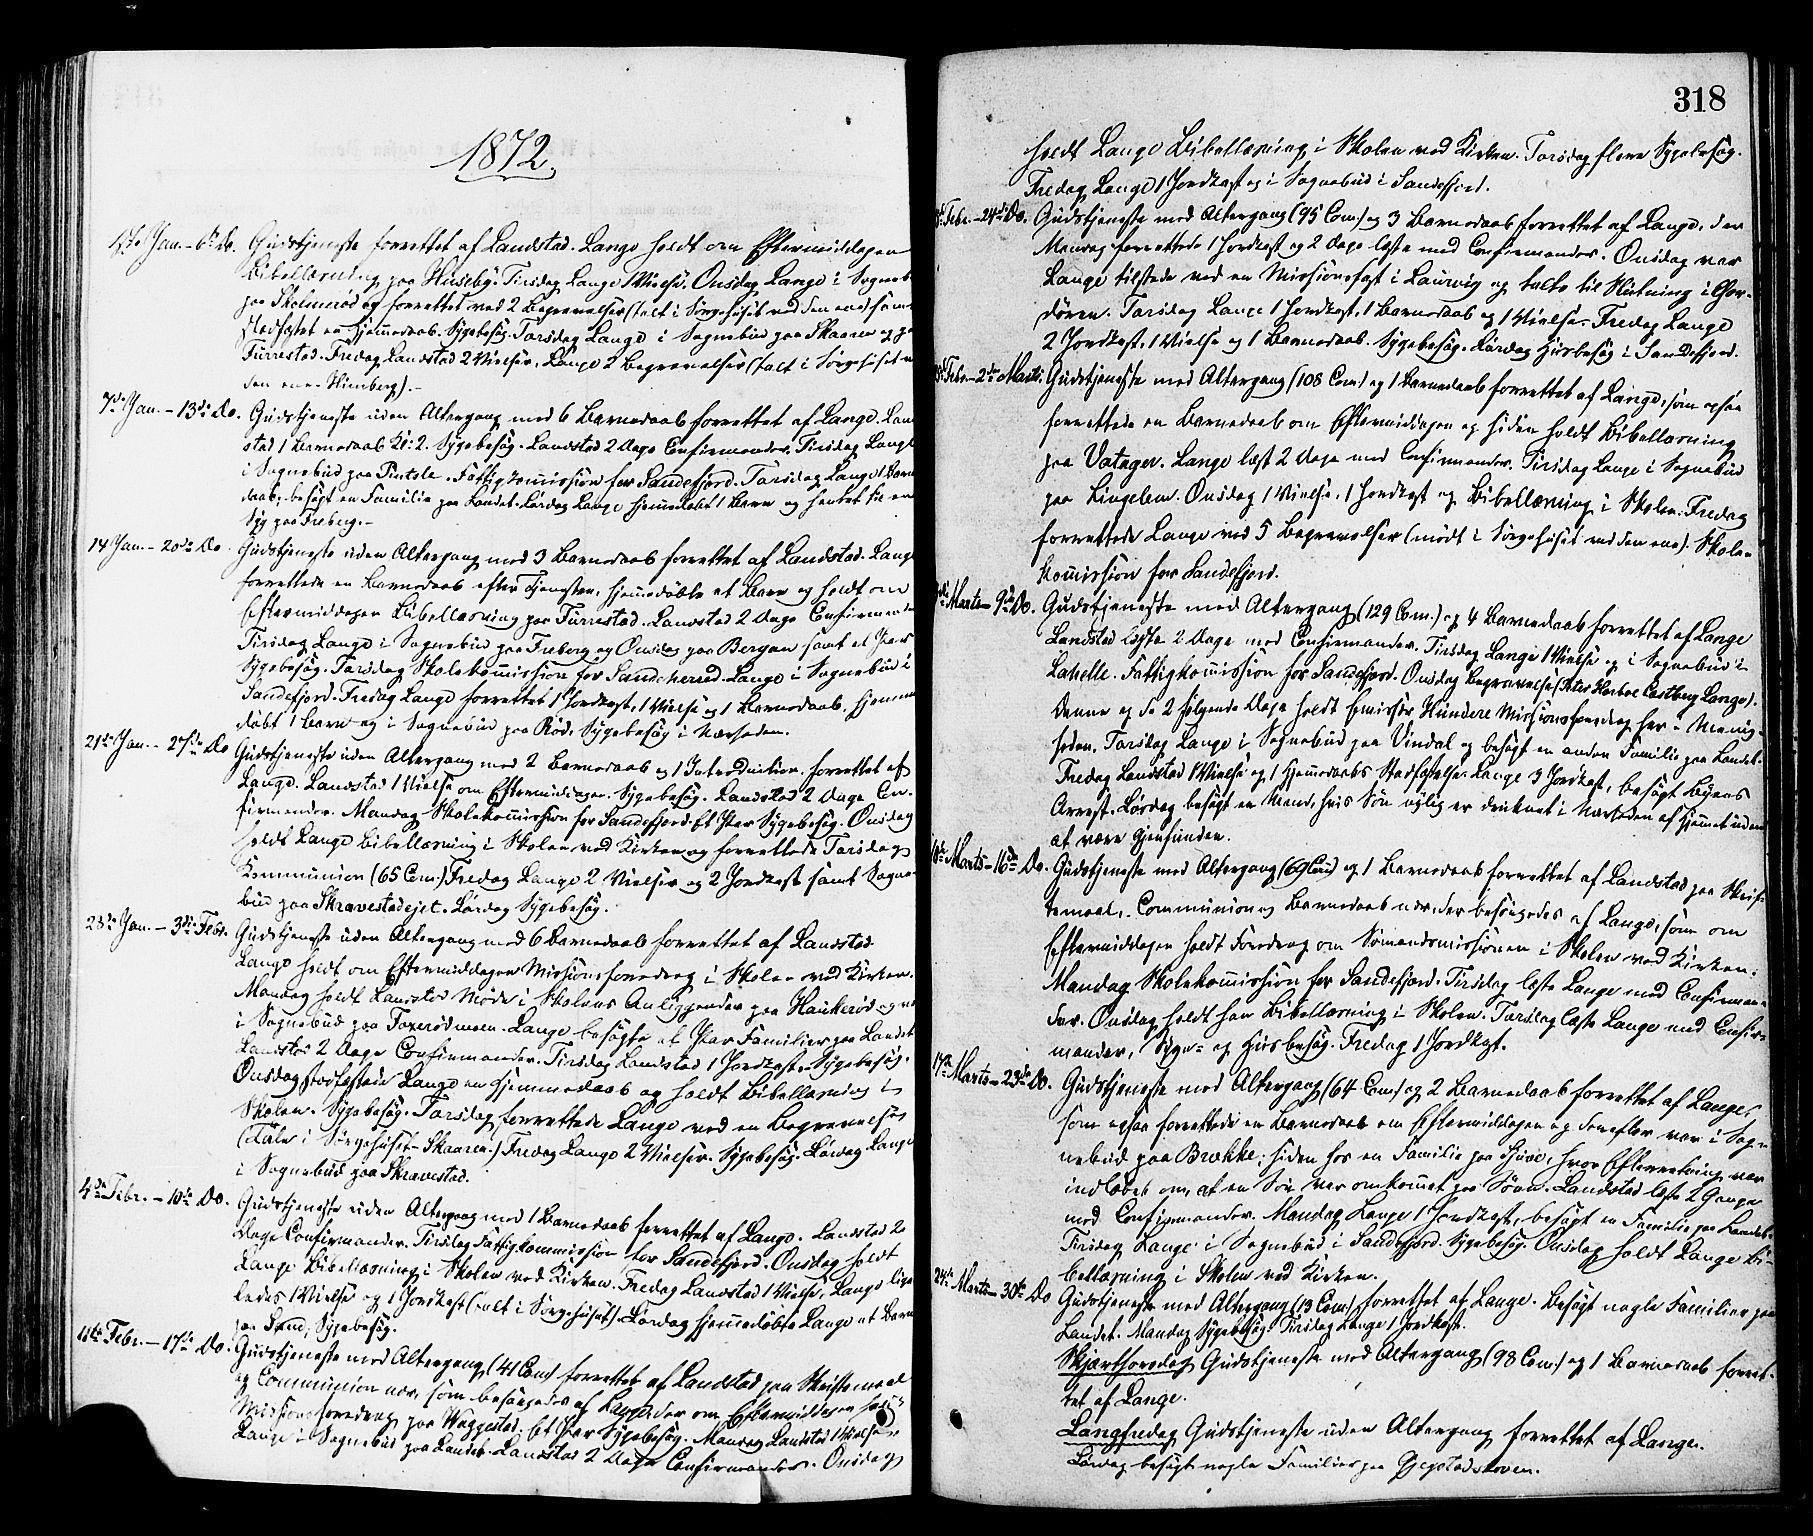 1872.
1ste Jan. – 6te Do. Gudstjeneste forrettet af Landstad. Lange holdt om Eftermiddagen
Bibellæsning paa Huseby. Tirsdag Lange 1 Vielse. Onsdag Lange i Sognebud
paa og forrettet ved 2 Begravelser (talt i Sørgehuset ved den ene) samt
stadfæstet en Hjemmedaab. Sygebesøg. Torsdag Lange i Sognebud paa Skaaren og paa
Furrestad. Fredag Landstad 2 Vielser, Lange 2 Begravelser (talt i Sørgehuset ved
den ene – Himberg). –
7de Jan. – 13de Do. Gudstjeneste uden Altergang med 6 Barnedaab forrettet af Lange. Land-
stad 1 Barnedaab Kl: 2. Sygebesøg. Landstad 2 Dage Confirmander. Tirsdag Lange
i Sognebud paa Pindsle. Fattigkommission for Sandefjord. Torsdag Lange 1 Barne-
daab, besøgt en Familie paa Landet. Lørdag Lange hjemmedøbt 1 Barn og hentet til en
Syg paa Freberg. –
14 Jan. – 20de Do. Gudstjeneste uden Altergang med 3 Barnedaab forrettet af Landstad. Lange
forrettede en Barnedaab efter Tjenesten, hjemmedøbte et Barn og holdt om
Eftermiddagen Bibellæsning paa Furrestad. Landstad 2 Dage Confirmander
Tirsdag Lange i Sognebud paa Freberg og Onsdag paa Bergan samt et Par
Sygebesøg. Torsdag Skolekommission for Sandeherred. Lange i Sognebud i
Sandefjord. Fredag Lange forrettet 1 Jordkast, 1 Vielse og 1 Barnedaab, hjemme-
døbt 1 Barn og i Sognebud paa Rød. Sygebesøg i Nærheden.
21de Jan. – 27de Do Gudstjeneste uden Altergang med 2 Barnedaab og 1 Introduction forrettet af
Lange. Landstad 1 Vielse om Eftermiddagen. Sygebesøg. Landstad 2 Dage Con-
firmander. Mandag Skolekommission for Sandefjord. Et Par Sygebesøg. Onsdag
holdt Lange Bibellæsning i Skolen ved Kirken og forrettede Torsdag
Kommunion (65 Com.) Fredag Lange 2 Vielser og 2 Jordkast samt Sogne-
bud paa Skravestadejet. Lørdag Sygebesøg.
28de Jan. – 3die Febr. Gudstjeneste uden Altergang med 6 Barnedaab forrettet af Landstad
Lange holdt om Eftermiddagen Missionsforedrag i Skolen ved Kirken.
Mandag holdt Landstad Møde i Skolens Anliggender paa Haukerød og var
i Sognebud paa Toxerødmoen. Lange besøgte et Par Familier paa Landet
Landstad 2 Dage Confirmander. Tirsdag Landstad 1 Jordkast. Sygebesøg.
Onsdag stadfæstede Lange en Hjemmedaab og holdt Bibellæsning i
Skolen. Sygebesøg. Torsdag forrettede Lange ved en Begravelse
(Tale i Sørgehuset – Skaaren.) Fredag Lange 2 Vielser. Sygebesøg. Lørdag Lange
i Sognebud paa Skravestad.
4de Febr. – 10de Do. Gudstjeneste uden Altergang med 1 Barnedaab forrettet af Lange. Landstad 2
Dage Confirmander. Tirsdag Fattigkommission for Sandefjord. Onsdag holdt
Lange Bibellæsning i Skolen ved Kirken. Fredag Landstad 1 Vielse, Lange lige-
ledes 1 Vielse og 1 Jordkast (talt i Sørgehuset). Lørdag hjemmedøbte Lange et Barn
paa Sand, Sygebesøg.
11te Febr. – 17de Do. Gudstjeneste med Altergang (41 Com) forrettet af Landstad paa Skriftemaal
og Communion nær, som besørgedes af Lange, der om Eftermiddagen holdt
Missionsforedrag paa Waggestad, Et Par Sygebesøg. Mandag Landstad 1 Vielse.
Lange i Sognebud paa Landet. Landstad 2 Dage Confirmander. Onsdag
318
holdt Lange Bibellæsning i Skolen ved Kirken. Torsdag flere Sygebesøg.
Fredag Lange 1 Jordkast og i Sognebud i Sandefjord.
Febr. – 24de Do. Gudstjeneste med Altergang (95 Com.) og 3 Barnedaab forrettet af Lange, der
Mandag forrettede 1 Jordkast og 2 Dage læste med Confirmander. Onsdag var
Lange tilstede ved en Missionsfest i Laurvig og talte til Slutning i Chor-
døren. Torsdag Lange 1 Jordkast, 1 Barnedaab og 1 Vielse. Fredag Lange
2 Jordkast, 1 Vielse og 1 Barnedaab. Sygebesøg. Lørdag Husbesøg i Sandefjord.
Febr. – 2den Marts. Gudstjeneste med Altergang (108 Com.) og 1 Barnedaab forrettet af Lange, som ogsaa
forrettede en Barnedaab om Eftermiddagen og siden holdt Bibellæsning
paa Vatager. Lange læst 2 Dage med Confirmander. Tirsdag Lange i Sognebud
paa Lingelem. Onsdag 1 Vielse, 1 Jordkast og Bibellæsning i Skolen. Fredag
forrettede Lange ved 5 Begravelser (mødt i Sørgehuset ved den ene). Skole-
kommission for Sandefjord.
Marts – 9de Do. Gudstjeneste med Altergang (129 Com.) og 4 Barnedaab forrettet af Lange
Landstad læste 2 Dage med Confirmander. Tirsdag Lange 1 Vielse og i Sognebud i
Lahelle. Fattigkommission for Sandefjord. Onsdag Begravelse (Peter Harboe Castberg Lange).
Denne og de 2 følgende Dage holdt Hundere Missionsforedrag her i Menig-
heden. Torsdag Lange i Sognebud paa Vindal og besøgt en anden Familie paa Landet.
Fredag Landstad 1 Vielse og 1 Hjemmedaabs Stadfæstelse. Lange 3 Jordkast, besøgt Byens
Arrest. Lørdag besøgt en Mand, hvis Søn nylig er druknet i Nærheden af Hjemmet uden
at være gjenfunden.
10de Marts – 16de Do. Gudstjeneste med Altergang (69 Com) og 1 Barnedaab forrettet af Landstad paa Skrif-
temaal, Communion og Barnedaab nær, der besørgedes af Lange, som om
Eftermiddagen holdt Foredrag om Sømandsmissionen i Skolen ved Kirken.
Mandag Skolekommission for Sandefjord. Tirsdag læste Lange med Confirman-
der. Onsdag holdt han Bibellæsning i Skolen. Torsdag læste Lange med Confir-
mander, Syge- og Husbesøg. Fredag 1 Jordkast.
17de Marts – 23de Do. Gudstjeneste med Altergang (64 Com) og 2 Barnedaab forrettet af Lange,
som ogsaa forrettede en Barnedaab om Eftermiddagen og derefter var i Sog-
nebud paa Brekke, siden hos en Familie paa Hjuve, hvor Efterretning var
indløbet om, at en Søn var omkommet paa Søen. Landstad læste 2 Gange
med Confirmander. Mandag Lange 1 Jordkast, besøgt en Familie paa Landet.
Tirsdag Lange i Sognebud i Sandefjord. Sygebesøg. Onsdag holdt Lange Bi-
bellæsning i Skolen ved Kirken.
24de Marts – 30te Do Gudstjeneste med Altergang (13 Com.) forrettet af Lange. Besøgt nogle Familier paa
Landet. Mandag Sygebesøg. Tirsdag Lange 1 Jordkast.
Skjærthorsdag Gudstjeneste med Altergang (98 Com.) og 1 Barnedaab forret-
tet af Lange.
Langfredag Gudstjeneste uden Altergang forrettet af Lange.
Lørdag besøgt nogle Familier paa Gjegstadskoven.